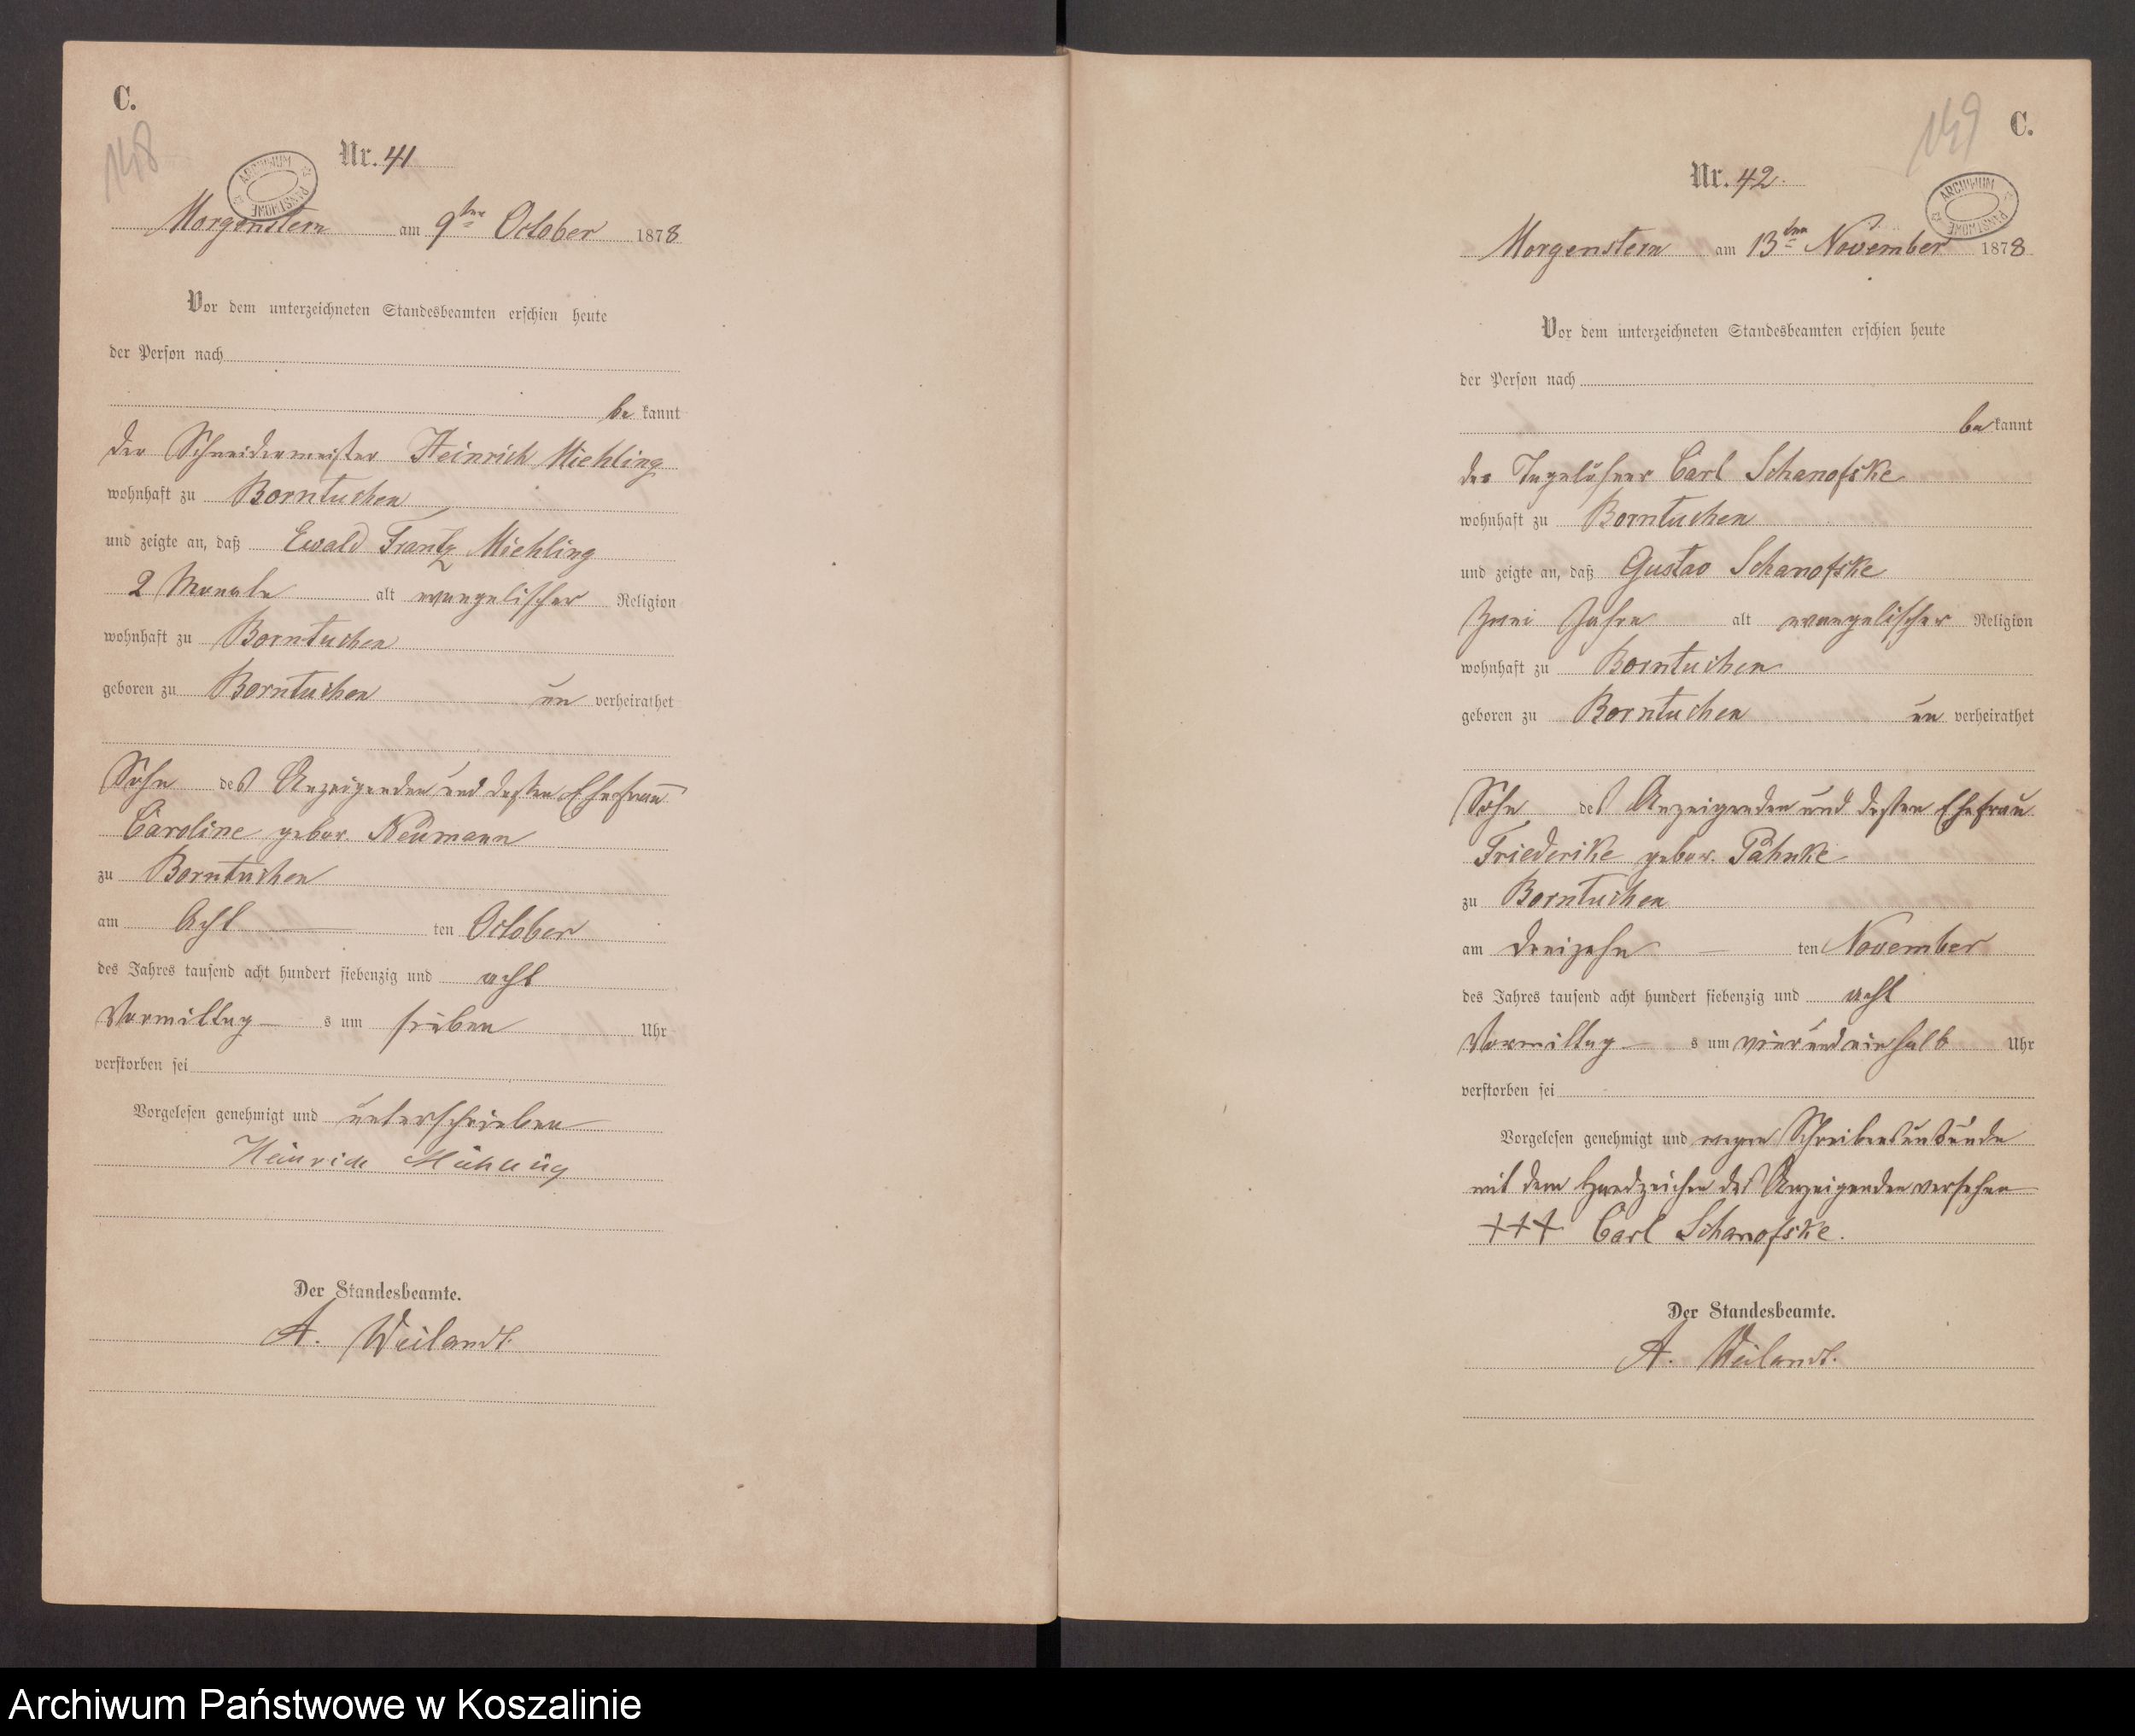 C.
148
ARCHIWUM PAŃSTWOWE
Nr. 41
Morgenstern am 9ten October 1878
Vor dem unterzeichneten Standesbeamten erschien heute
der Person nach
be kannt
der Schneidermeister Heinrich Miehling
wohnhaft zu Borntuchen
und zeigte an, daß Ewald Frantz Miehling
2 Monate alt evangelischer Religion
wohnhaft zu Borntuchen
geboren zu Borntuchen un verheirathet
Sohn des Anzeigenden und dessen Ehefrau
Caroline gebor. Neumann
zu Borntuchen
am Acht ten October
des Jahres tausend acht hundert siebenzig und acht
Vormittag s um sieben Uhr
verstorben sei
Vorgelesen genehmigt und unterschrieben
Heinrich Miehling
Der Standesbeamte.
A. Weilandt.
C.
149
ARCHIWUM PAŃSTWOWE
Nr. 42.
Morgenstern am 13ten November 1878
Vor dem unterzeichneten Standesbeamten erschien heute
der Person nach
be kannt
der Tagelöhner Carl Schanofske
wohnhaft zu Borntuchen
und zeigte an, daß Gustav Schanofske
Zwei Jahre alt evangelischer Religion
wohnhaft zu Borntuchen
geboren zu Borntuchen un verheirathet
Sohn des Anzeigenden und dessen Ehefrau
Friederike gebor. Pähnke
zu Borntuchen
am dreizehn ten November
des Jahres tausend acht hundert siebenzig und acht
Vormittag s um vier und ein halb Uhr
verstorben sei
Vorgelesen genehmigt und wegen Schreibensunkunde
mit dem Handzeichen des Anzeigenden versehen
+++ Carl Schanofske.
Der Standesbeamte.
A. Weilandt.
Archiwum Państwowe w Koszalinie